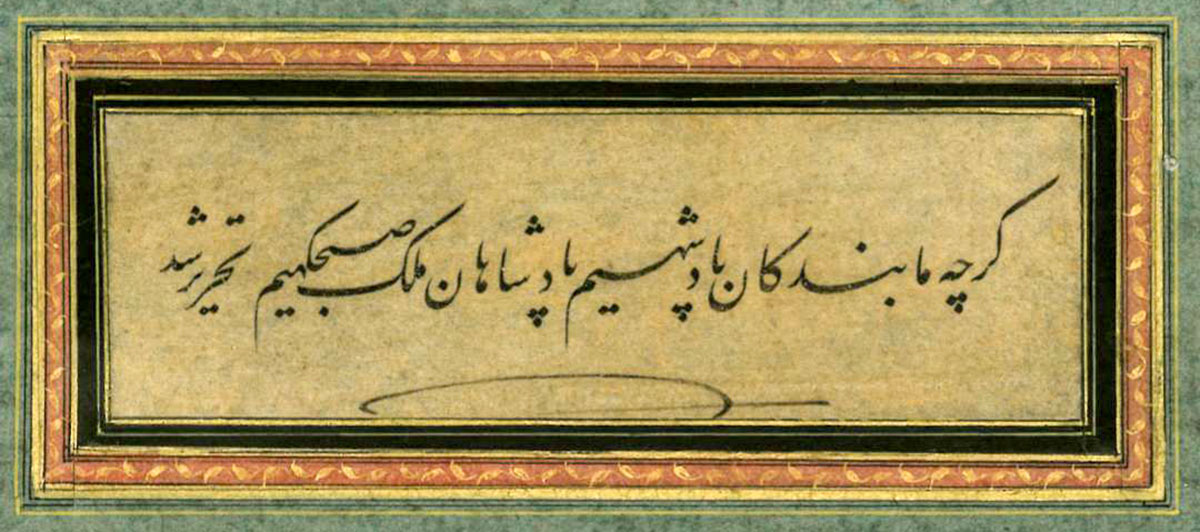 کرچه ما بندکان پادشهیم پادشاهان ملک صبحکهیم تحریر شد